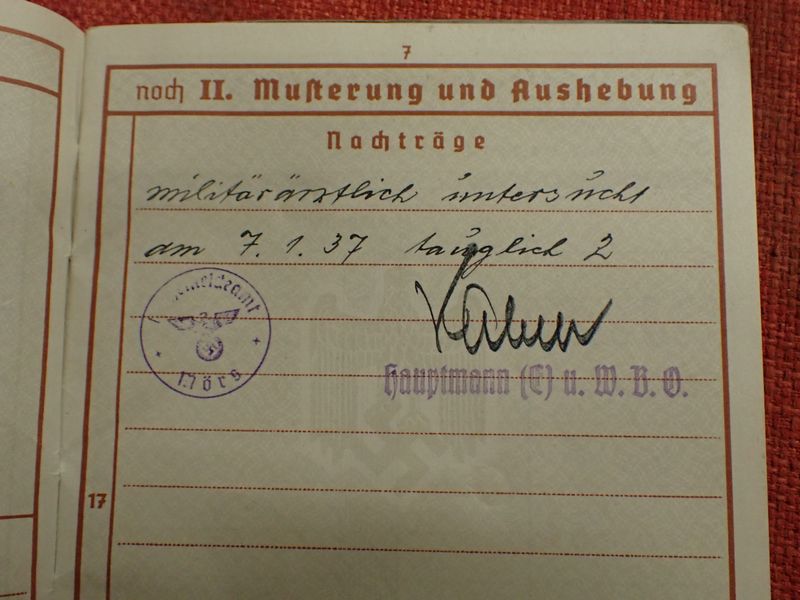 7
noch II. Musterung und Aushebung
Nachträge
militärärztlich untersucht
am 7.1.37 tauglich 2
Hauptmann (E) u. W. B. O.
Mörs
17